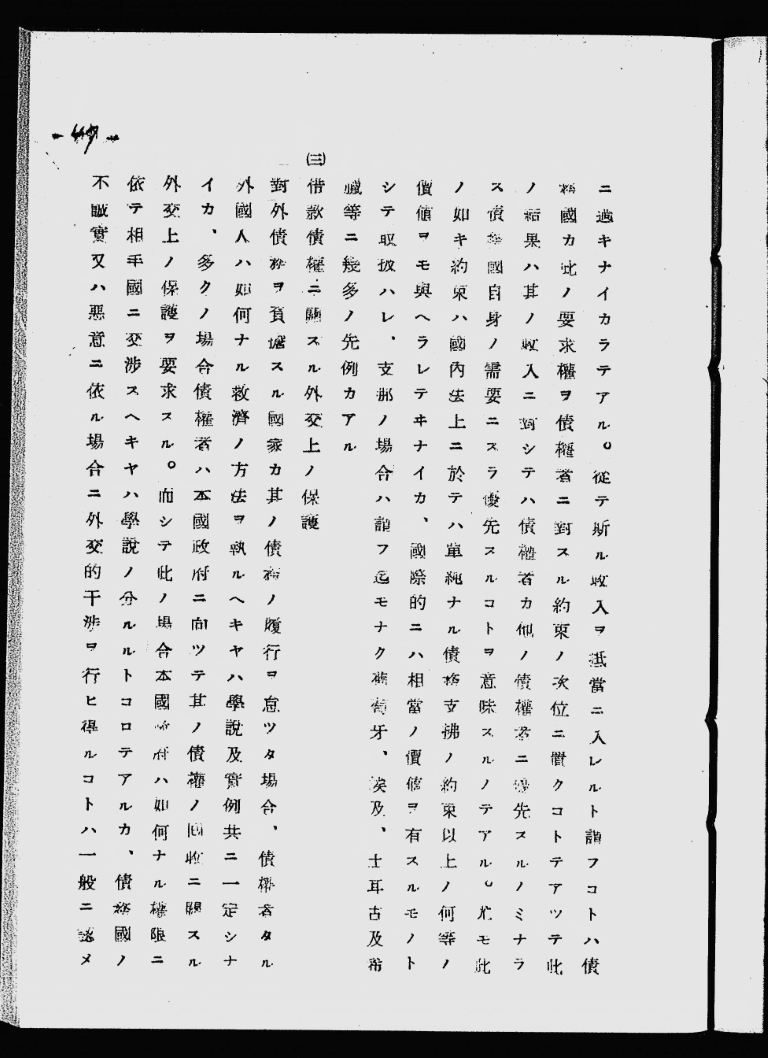 ニ過キナイカラテアル。從テ斯ル收入ヲ抵當ニ入レルト謂フコトハ債
務國カ此ノ要求權ヲ債權者ニ對スル約束ノ次位ニ置クコトテアツテ此
ノ結果ハ其ノ收入ニ對シテハ債權者カ他ノ債權者ニ優先スルノミナラ
ス債務國自身ノ需要ニスラ優先スルコトヲ意味スルノテアル。尤モ此
ノ如キ約束ハ國內法上ニ於テハ單純ナル債務支拂ノ約束以上ノ何等ノ
價値ヲモ與ヘラレテヰナイカ、國際的ニハ相當ノ價値ヲ有スルモノト
シテ取扱ハレ、支那ノ場合ハ謂フ迄モナク葡萄牙、埃及、土耳古及希
臘等ニ幾多ノ先例カアル
㈢借款債權ニ關スル外交上ノ保護
對外債務ヲ負擔スル國家カ其ノ債務ノ履行ヲ怠ツタ場合、債權者タル
外國人ハ如何ナル救濟ノ方法ヲ執ルヘキヤハ學說及實例共ニ一定シナ
イカ、多クノ場合債權者ハ本國政府ニ向ツテ其ノ債權ノ回收ニ關スル
外交上ノ保護ヲ要求スル。而シテ此ノ場合本國政府ハ如何ナル權限ニ
依テ相手國ニ交涉スヘキヤハ學說ノ分ルルトコロテアルカ、債務國ノ
不誠實又ハ惡意ニ依ル場合ニ外交的干涉ヲ行ヒ得ルコトハ一般ニ認メ